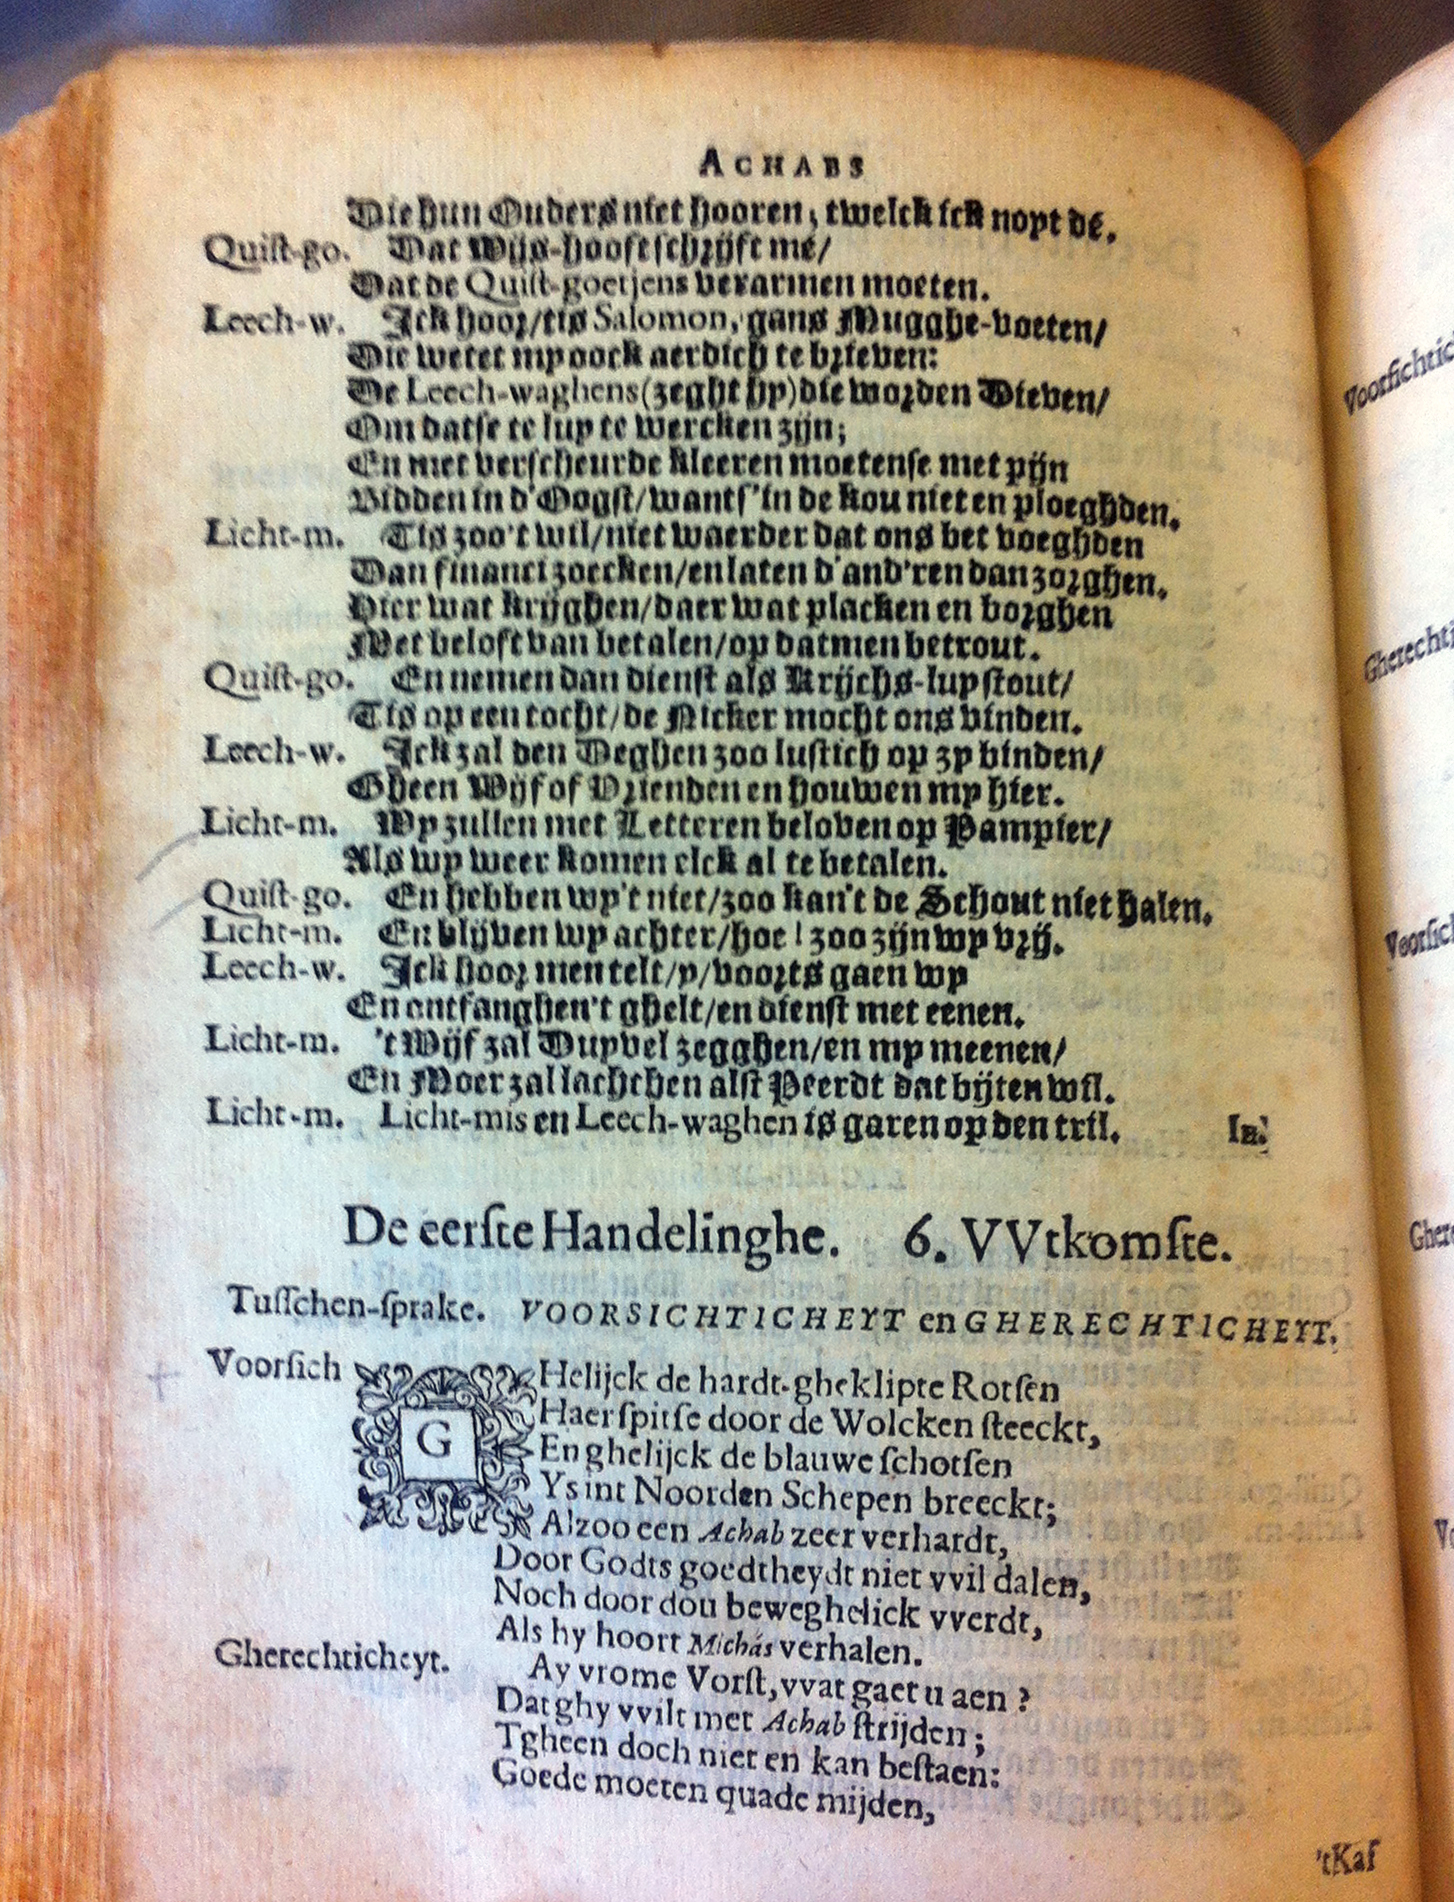 ACHABS
Die hun Ouders niet hooren, twelck ick nopt dé.
Quist-go. Dat Wijs-hooft schrijft mé/
Dat de Quist-goetjens verarmen moeten.
Leech-w. Ick hoor/tis Salomon, gans Mugghe-voeten/
Die weet my oock aerdich te brieven:
De Leech-waghens (zeght hy) die worden Dieven/
Om datse te luy te wercken zijn;
En met verscheurde kleeren moetense met pijn
Bidden in d'Oogst/want s'in de kou niet en ploeghden.
Licht-m. Tis zoo't wil/niet waerder dat ons bet voeghden
Dan financi zoecken/en laten d'and'ren dan zorghen.
Hier wat krijghen/daer wat placken en borghen
Met beloft van betalen/op datmen betrout.
Quist-go. En nemen dan dienst als Krijchs-luy stout/
Tis op een tocht/de Nicker mocht ons binden.
Leech-w. Ick zal den Deghen zoo lustich op zy binden/
Gheen Wijf of Vrienden en houwen my hier.
Licht-m. Wy zullen met Letteren beloven op Pampier/
Als wy weer komen elck al te betalen.
Quist-go. En hebben wy't niet/zoo kan't de Schout niet halen.
Licht-m. En blijven wy achter/hoe! zoo zijn wy vrij.
Leech-w. Ick hoor men telt/y/voorts gaen wy
En ontfanghen't ghelt/en dienst met eenen.
Licht-m. 't Wijf zal Duyvel zegghen/en my meenen/
En Moer zal lachchen alst Peerdt dat bijten wil.
Licht-m. Licht-mis en Leech-waghen is garen op den tril. In.
De eerste Handelinghe. 6. VVtkomste.
Tusschen-sprake. VOORSICHTICHEYT en GHERECHTICHEYT.
Voorsich GHelijck de hardt-gheklipte Rotsen
Haer spitse door de Wolcken steeckt,
En ghelijck de blauwe schotsen
Ys int Noorden Schepen breeckt;
Alzoo een Achab zeer verhardt,
Door Godts goedtheydt niet vvil dalen,
Noch door dou beweghelick vverdt,
Als hy hoort Michás verhalen.
Gherechticheyt. Ay vrome Vorst, vvat gaet u aen?
Dat ghy vvilt met Achab strijden;
Tgheen doch niet en kan bestaen:
Goede moeten quade mijden,
'tKaf
Voorsichtic
Gherechti
Voorsich
Ghere
Vo